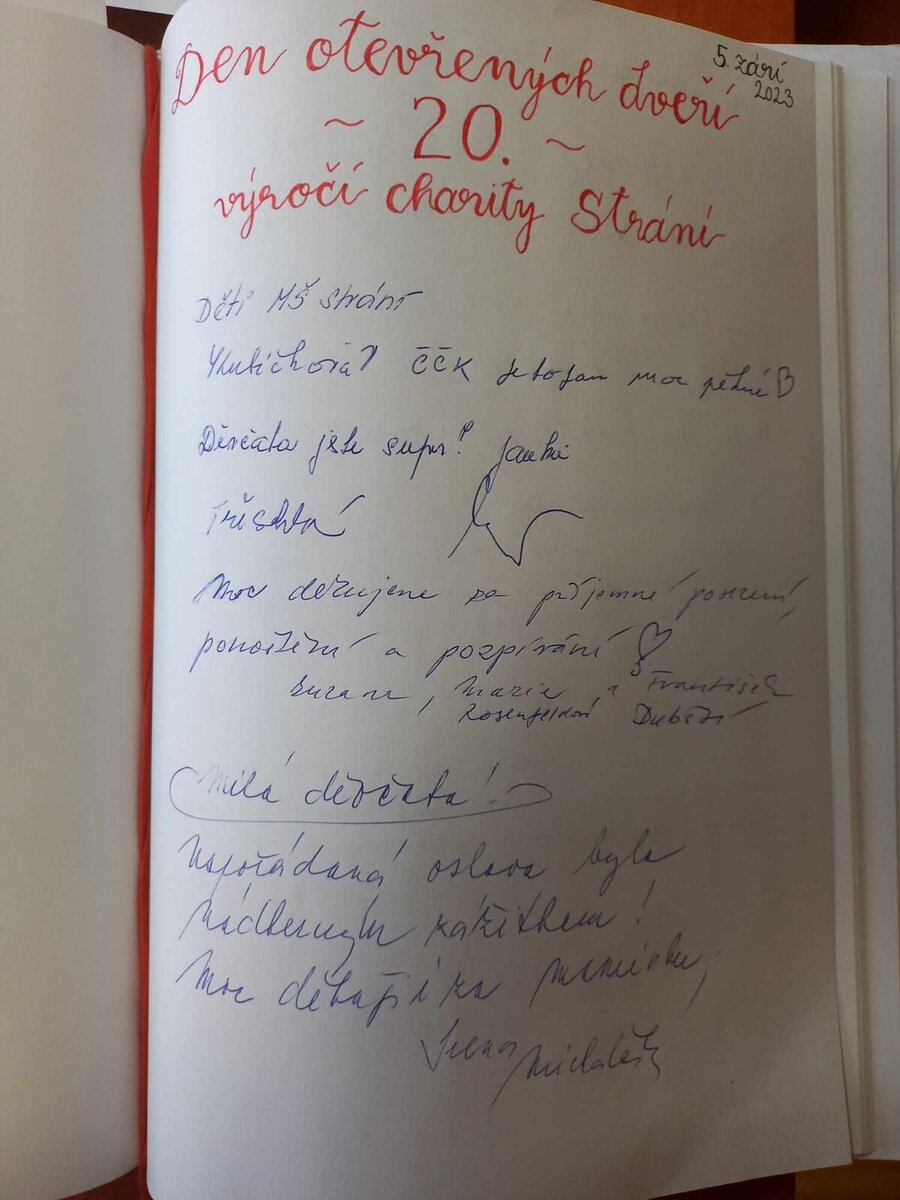 Den otevřených dveří
5. září
2023
~ 20. ~
výročí charity Strání
Děti MŠ Strání
ČČK je to tam moc pěkné
Děvčata jste super!
Moc děkujeme za příjemné posezení,
pohoštění a pozpívání
Zuzana, Marie a František
Rosenfeldová
Milá děvčata!
Uspořádaná oslava byla
nádherným zážitkem!
Moc děkuji i za maminku,
Irena